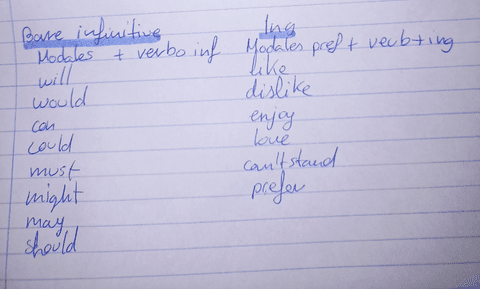 Bare infinitive
Modales + verbo inf
will
would
can
could
must
might
may
should
Ing
Modales pref + verb+ing
like
dislike
enjoy
love
can't stand
prefer